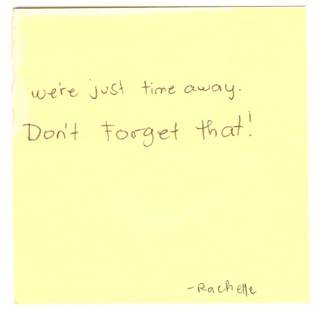 we're just time away.
Don't Forget that!
-Rachelle